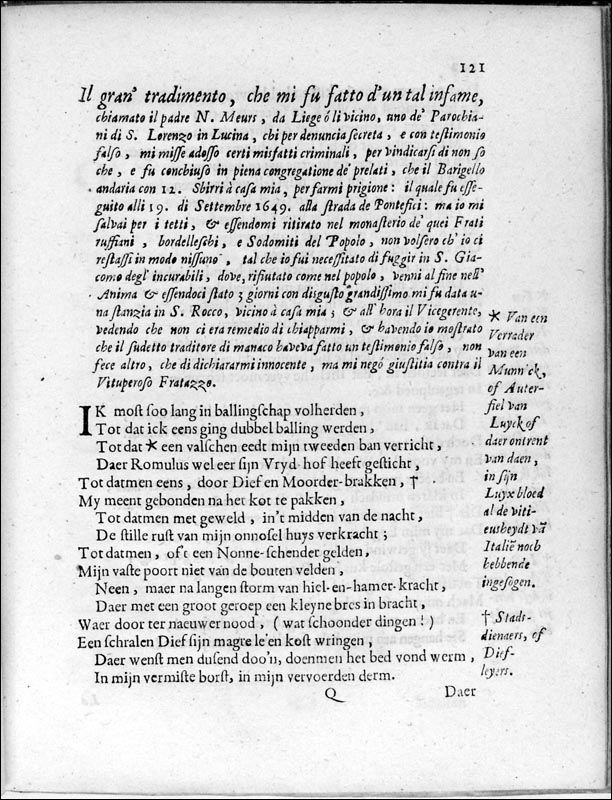 121
Il gran' tradimento, che mi fu fatto d'un tal infame,
chiamato il padre N. Meurs, da Liege ó li vicino, uno de' Parochia-
ni di S. Lorenzo in Lucina, chi per denuncia secreta, e con testimonio
falso, mi misse adosso certi misfatti criminali, per vindicarsi di non so
che, e fu conchiuso in piena congregatione de' prelati, che il Barigello
andaria con 12. Sbirri à casa mia, per farmi prigione: il quale fu esse-
guito alli 19. di Settembre 1649. alla strada de Pontefici: ma io mi
salvai per i tetti, & essendomi ritirato nel monasterio de' quei Frati
ruffiani, bordelleschi, e Sodomiti del Popolo, non volsero ch' io ci
restassi in modo nissuno, tal che io fui necessitato di fuggir in S. Gia-
como degl' incurabili, dove, rifiutato come nel popolo, venni al fine nell'
Anima & essendoci stato 3 giorni con disgusto grandissimo mi fu data u-
na stanzia in S. Rocco, vicino à casa mia; & all' hora il Vicegerente,
vedendo che non ci era remedio di chiapparmi, & havendo io mostrato
che il sudetto traditore di manaco haveva fatto un testimonio falso, non
fece altro, che di dichiararmi innocente, ma mi negó giustitia contra il
Vituperoso Fratazzo.
IK most soo lang in ballingschap volherden,
Tot dat ick eens ging dubbel balling werden,
Tot dat * een valschen eedt mijn tweeden ban verricht,
Daer Romulus wel eer sijn Vryd-hof heeft gesticht,
Tot datmen eens, door Dief en Moorder-brakken, †
My meent gebonden na het kot te pakken,
Tot datmen met geweld, in't midden van de nacht,
De stille rust van mijn onnosel huys verkracht;
Tot datmen, oft een Nonne-schender gelden,
Mijn vaste poort niet van de bouten velden,
Neen, maer na langen storm van hiel-en-hamer-kracht,
Daer met een groot geroep een kleyne bres in bracht,
Waer door ter naeuwer nood, (wat schoonder dingen!)
Een schralen Dief sijn magre le'en kost wringen,
Daer wenst men dusend doo'n, doenmen het bed vond werm,
In mijn vermiste borst, in mijn vervoerden derm.
Q
Daer
* Van een
Verrader
van een
Munn'ck,
of Auter-
fiel van
Luyck of
daer ontrent
van daen,
in sijn
Luyx bloed
al de viti-
eusheydt vā
Italiē noch
hebbende
ingesogen.
† Stads-
dienaers, of
Dief-
leyers.